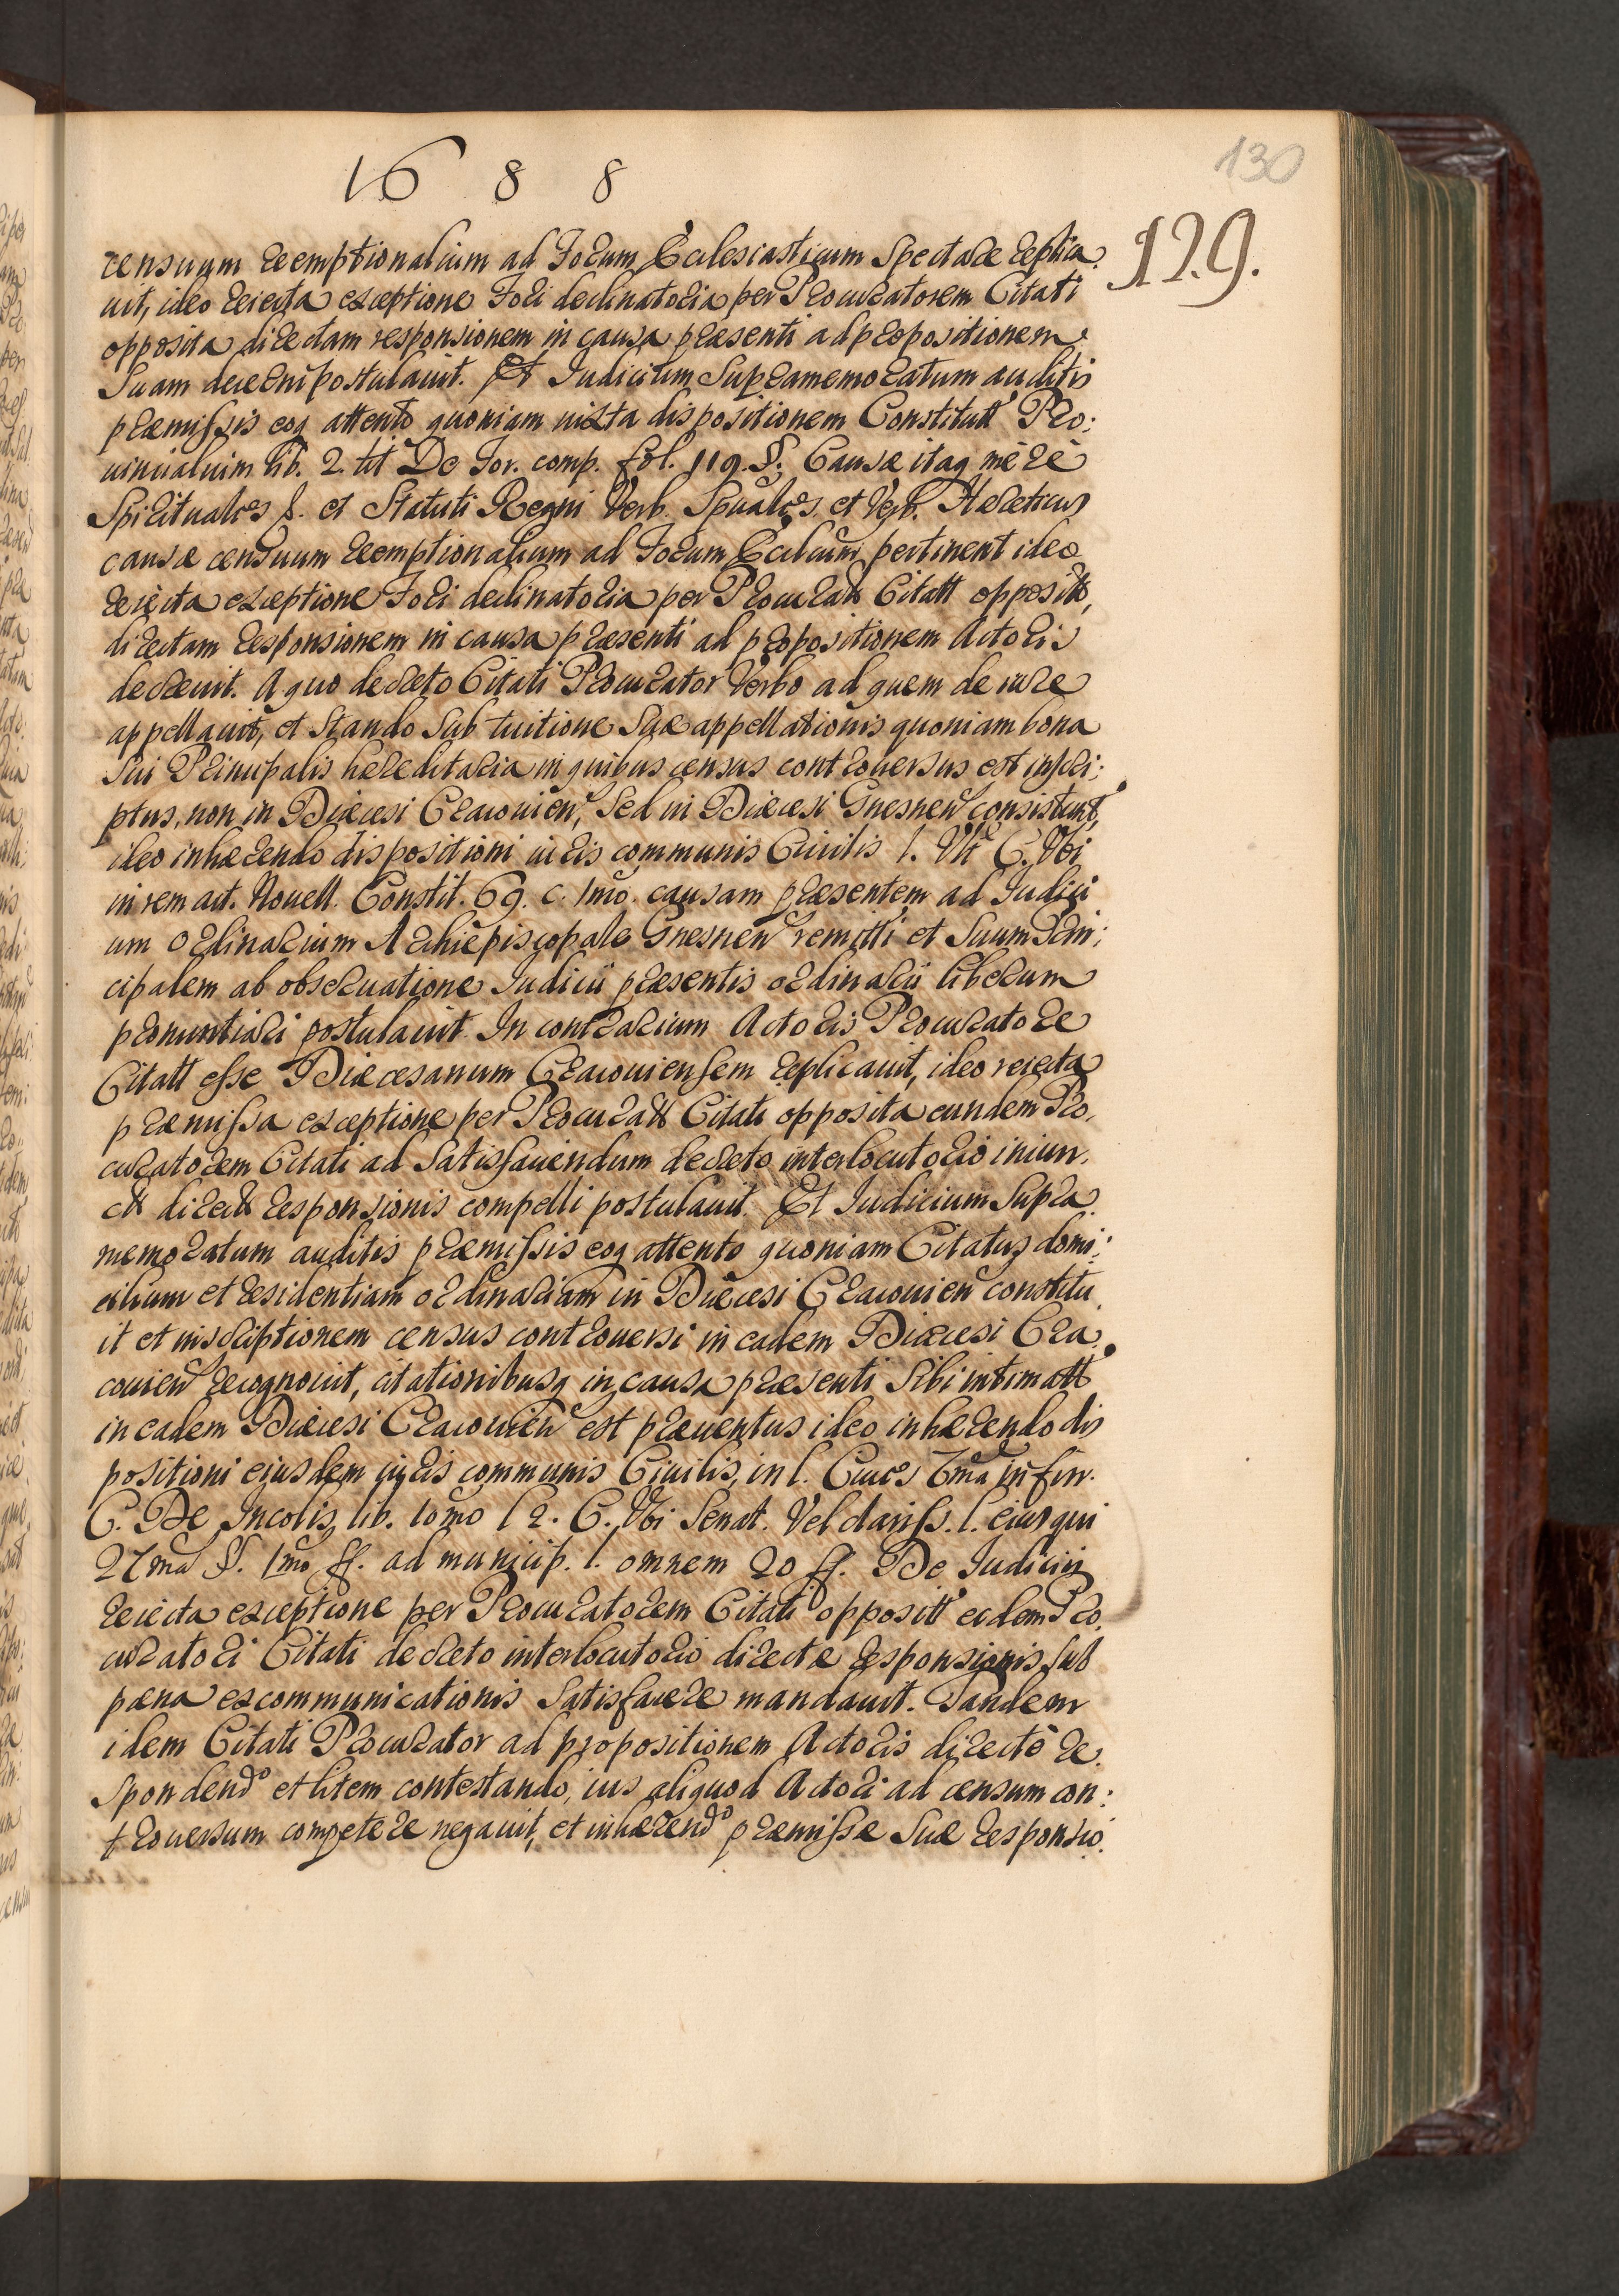 1688
130
129.
censuum reemptionalium ad Forum Ecclesiasticum Spectare replica
uit, ideo reiecta exceptione Fori declinatoria per Procuratorem Citati
opposita directam responsionem in causa præsenti ad propositionem
Suam decerni postulauit. Et Iudicium Supramemoratum auditis
præmissis eoq attento quoniam iuxta dispositionem Constitutt Pro:
uincialium lib. 2. tit De For. comp. fol. 119. §. Causæ itaq mere
Spirituales §. et Statuti Regni Verb. Spuales. et Verb. Hæreticus
causæ censuum reemptionalium ad Forum Ecclicum pertinent ideo
reiecta exceptione Fori declinatoria per Procuratt Citatt oppositt,
directam responsionem in causa præsenti ad propositionem Actoris
decreuit. A quo decreto Citati Procurator Verbo ad quem de iure
appellauit, et Stando Sub tuitione Suæ appellationis quoniam bona
Sui Principalis hæreditaria in quibus census controuersus est inscri:
ptus, non in Diæcesi Cracouien, Sed in Diæcesi Gnesnen consistunt,
ideo inhærendo dispositioni iuris communis Ciuilis l. Vlt C. Vbi
in rem act. Nouell. Constit. 69. c. 1mo. causam præsentem ad Iudici
um Ordinarium Archiepiscopale Gnesnen remitti et Suum Prin:
cipalem ab obseruatione Iudicii præsentis ordinarii liberum
pronuntiari postulauit. In contrarium Actoris Procuratore
Citatt esse Diæcesanum Cracouiensem replicauit, ideo reiecta
præmissa exceptione per Procuratt Citati opposita eundem Pro,
curatorem Citati ad Satisfaciendum decreto interlocutorio iniun,
ctt directt responsionis compelli postulauit. Et Iudicium Supra
memoratum auditis præmissis eoq attento quoniam Citatus domi:
cilium et residentiam ordinariam in Diæcesi Cracouien constitu
it et inscriptionem census controuersi in eadem Diæcesi Cra
couien recognouit, citationibusq in causa præsenti Sibi intimatt
in eadem Diæcesi Cracouien est præuentus ideo inhærendo dis
positioni eiusdem iuris communis Ciuilis, in l. Ciues 7ma in fin.
C. De Incolis lib. 10mo l 2. C. Vbi Senat. Vel clariss. l. eius qui
27ma §. 1mo ff. ad municip. l. omnem 20 ff. De Iudiciis
reiecta exceptione per Procuratorem Citati oppositt eidem Pro,
curatori Citati decreto interlocutorio directæ responsionis Sub
pæna excommunicationis Satisfacere mandauit. Tandem
idem Citati Procurator ad propositionem Actoris directe re
Spondend̊o et litem contestando, ius aliquod Actori ad censum con:
trouersum competere negauit, et inhærend̊o præmissæ Suæ responsio